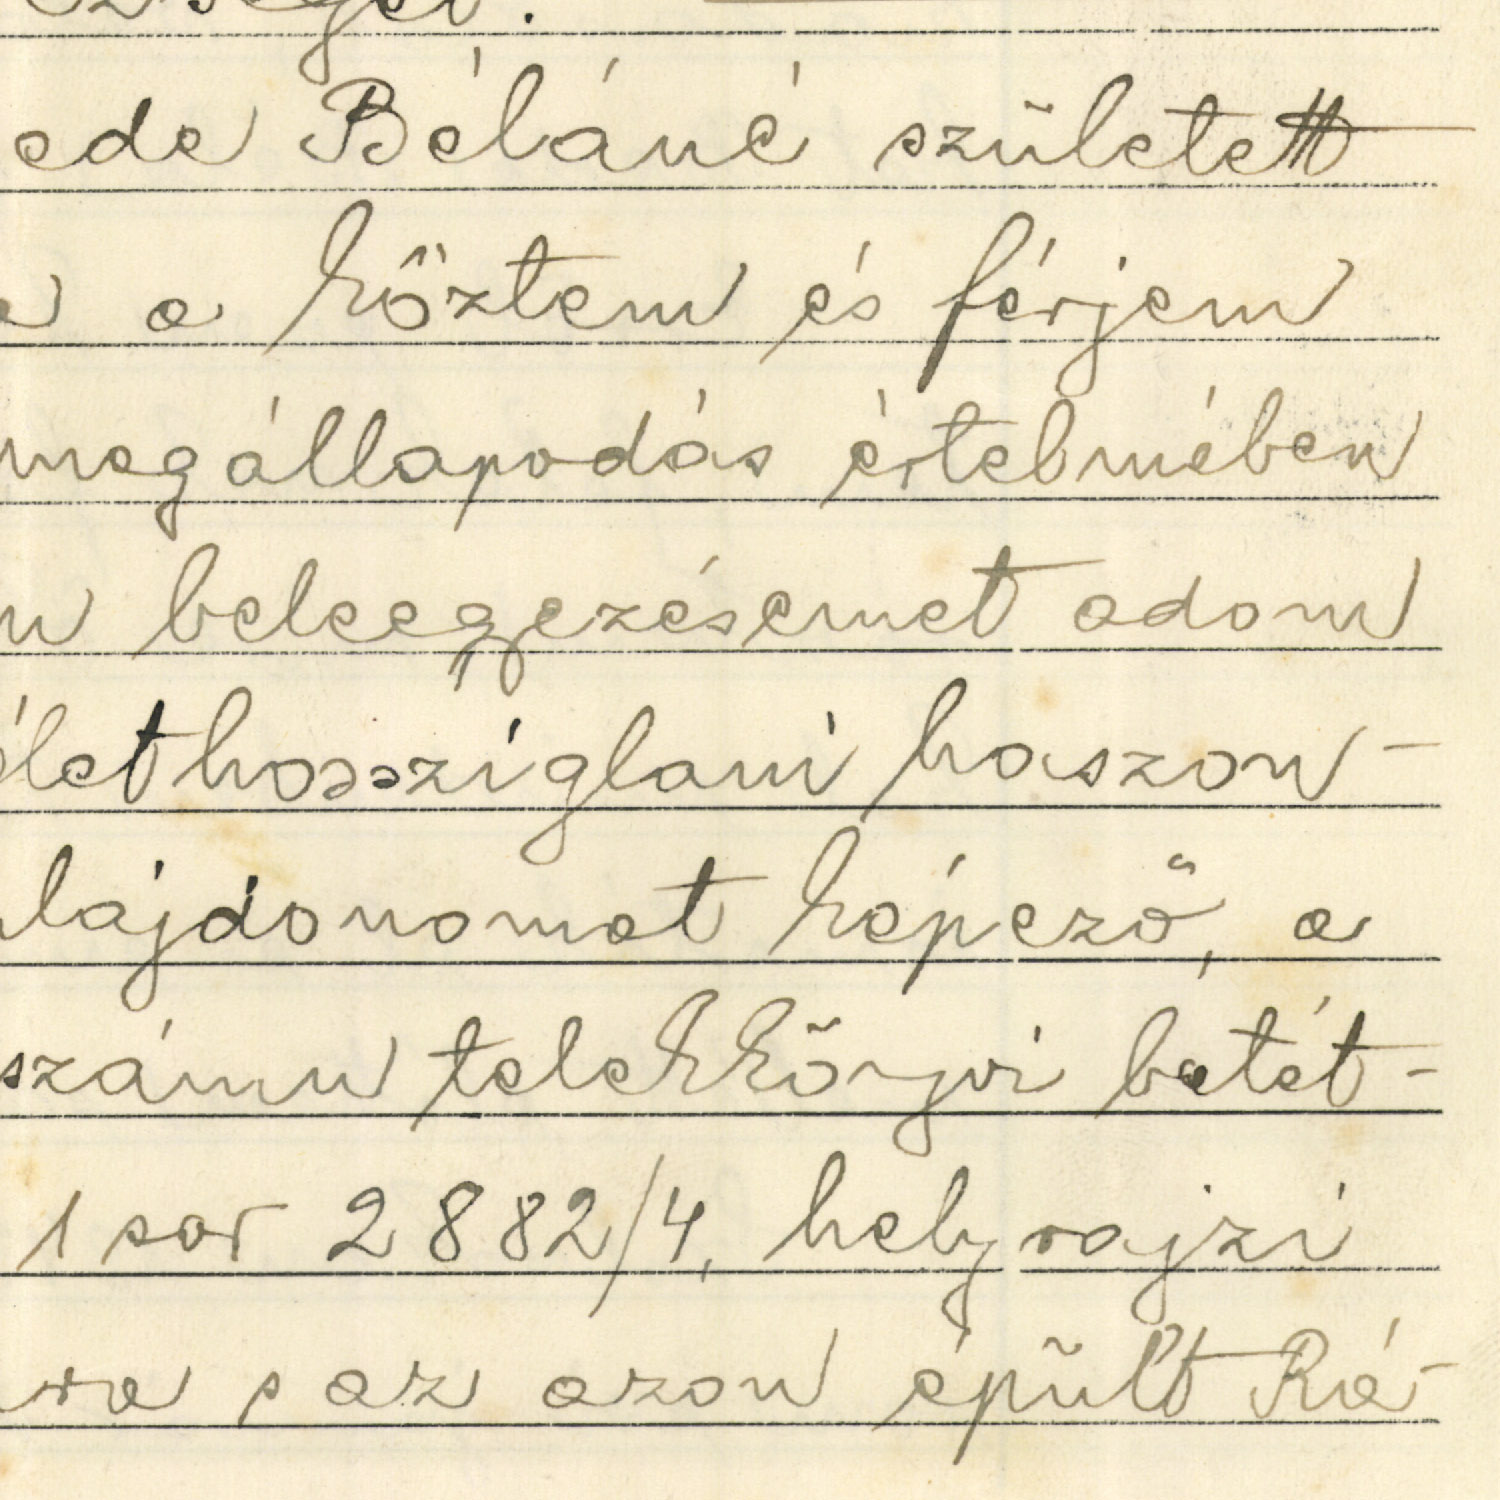 ede Béláné született
a a köztem és férjem
megállapodás értelmében
beleegyezésemet adom
élethossziglani haszon-
lajdonomat képező, a
számu telekkönyvi betét-
1 sor 2882/4, helyrajzi
ra s az azon épült Rá-